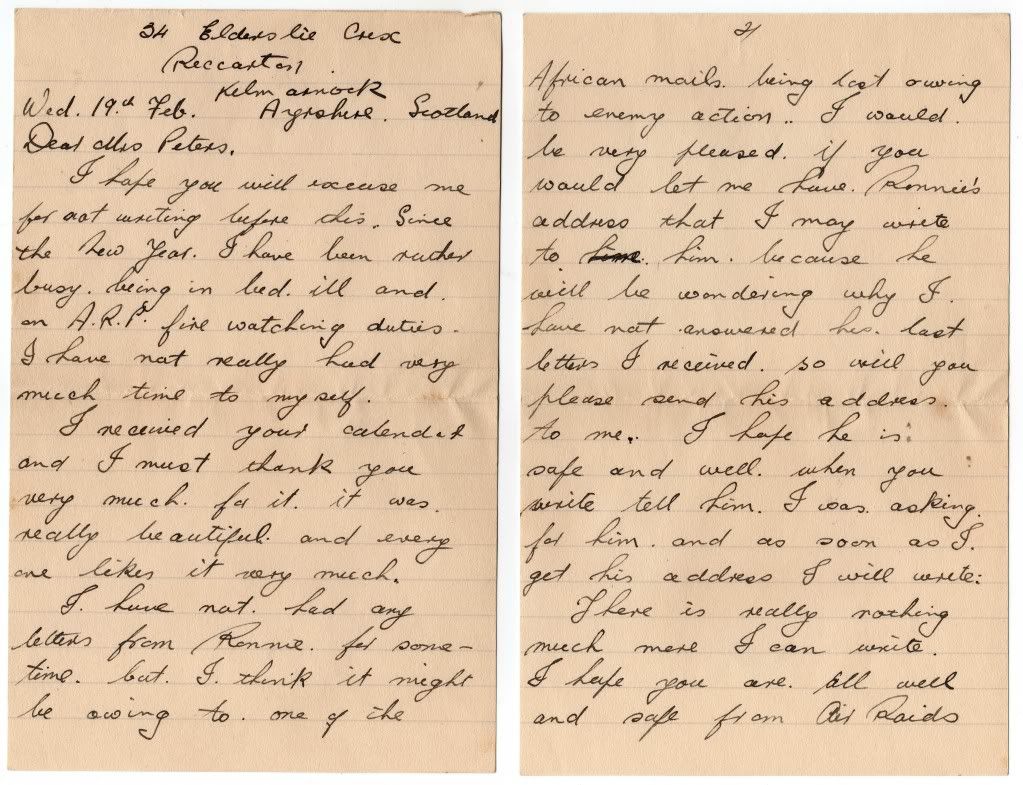 34 Elderslie Cres
Reccarton.
Kelmarnock
Wed. 19th Feb. Ayrshire. Scotland
Dear Mrs Peters.
I hope you will excuse me
for not writing before this. Since
the New Year. I have been rather
busy. being in bed. ill and.
on A.R.P.s fire watching duties.
I have not really had very
much time to myself.
I received your calendar
and I must thank you
very much. for it. it was.
really beautiful. and every
one likes it very much.
I. have not. had any
letters from Ronnie. for some-
time. but. I. think it might
be owing to. one of the
2/
African mails. being lost owing
to enemy action.. I would.
be very pleased. if you
would let me have. Ronnie's
address that I may write
to him. him. because he
will be wondering why I.
have not answered his. last
letters I received. so will you
please send his address
to me.. I hope he is.
safe and well. when you
write tell him. I was. asking.
for him. and as soon as I.
get his address I will write:
There is really nothing
much more I can write.
I hope you are. all well
and safe from Air Raids